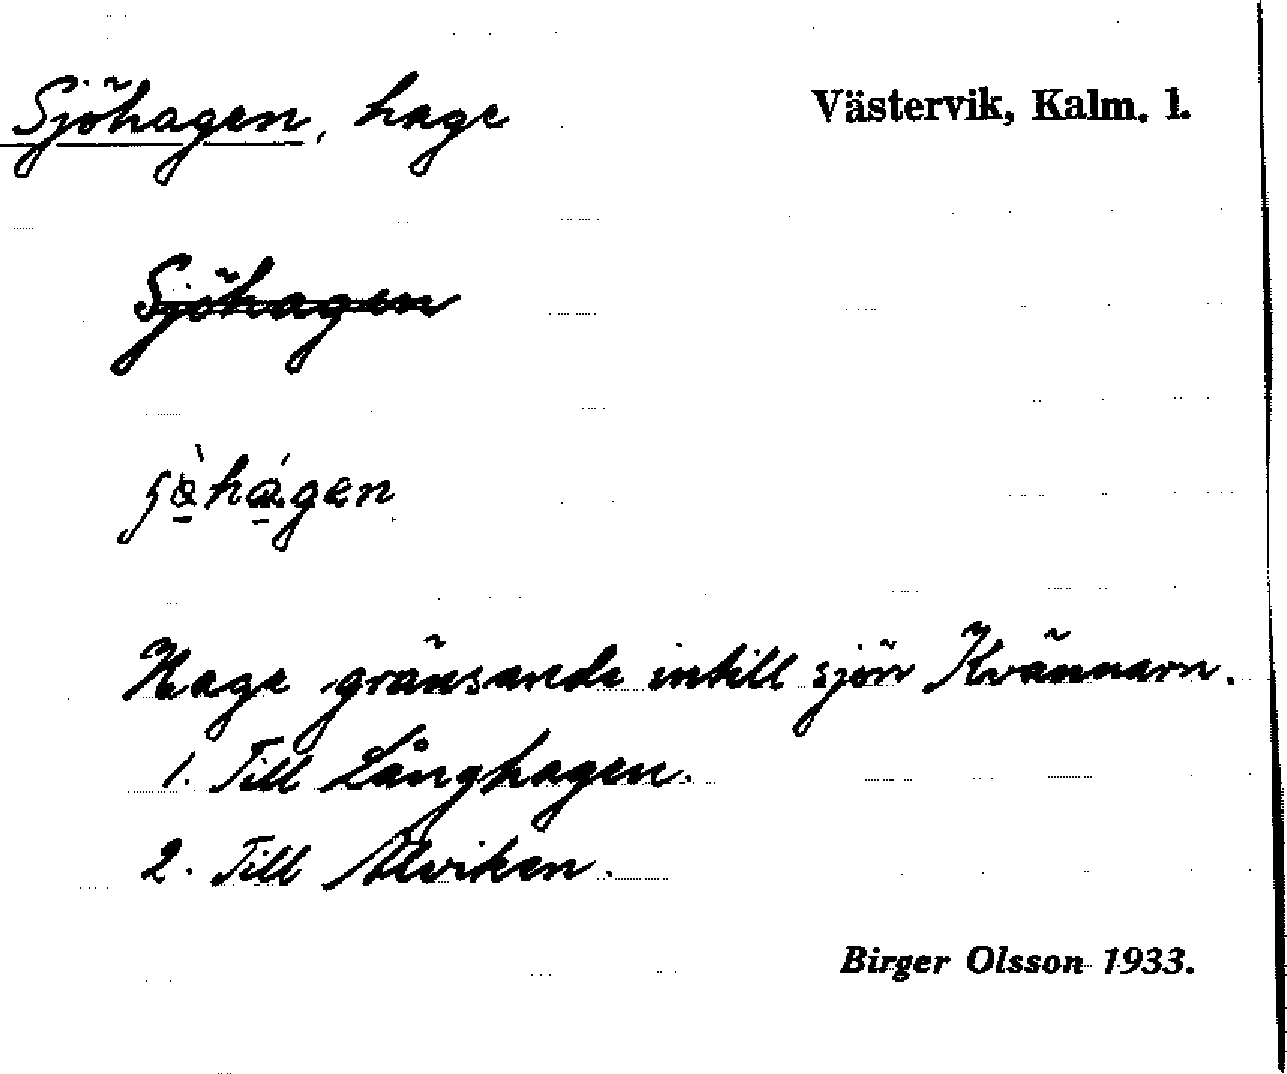 Sjöhagen, hage
Västervik, Kalm. l.
Sjöhagen
Hage gränsande intill sjön Kvännarn.
1. Till Långhagen.
2. Till Alviken.
Birger Olsson 1933.